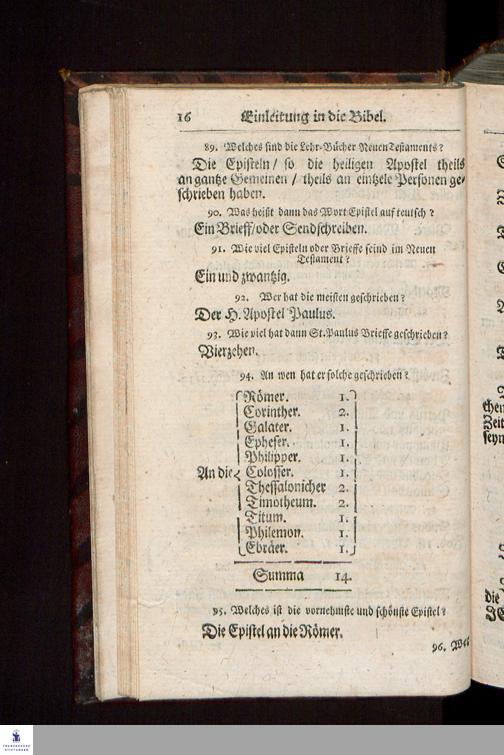 16 Einleitung in die Bibel.
89. Welches sind die Lehr-Bücher Neuen Testaments?
Die Episteln / so die heiligen Apostel theils
an gantze Gemeinen / theils an eintzele Personen ge-
schrieben haben.
90. Was heißt dann das Wort Epistel auf teutsch?
Ein Brieff/oder Sendschreiben.
91. Wie viel Episteln oder Brieffe seind im Neuen
Testament?
Ein und zwantzig.
92. Wer hat die meisten geschrieben?
Der H. Apostel Paulus.
93. Wie viel hat dann St. Paulus Brieffe geschrieben?
Vierzehen.
94. An wen hat er solche geschrieben?
Römer. 1.
Corinther. 2.
Galater. 1.
Epheser. 1.
Philipper. 1.
An die Colosser. 1.
Thessalonicher 2.
Timotheum. 2.
Titum. 1.
Philemon. 1.
Ebräer. 1.
Summa 14.
95. Welches ist die vornehmste und schönste Epistel?
Die Epistel an die Römer.
96. Wel
chen
Zeit
seyn
die
FRANCKESCHE
STIFTUNGEN